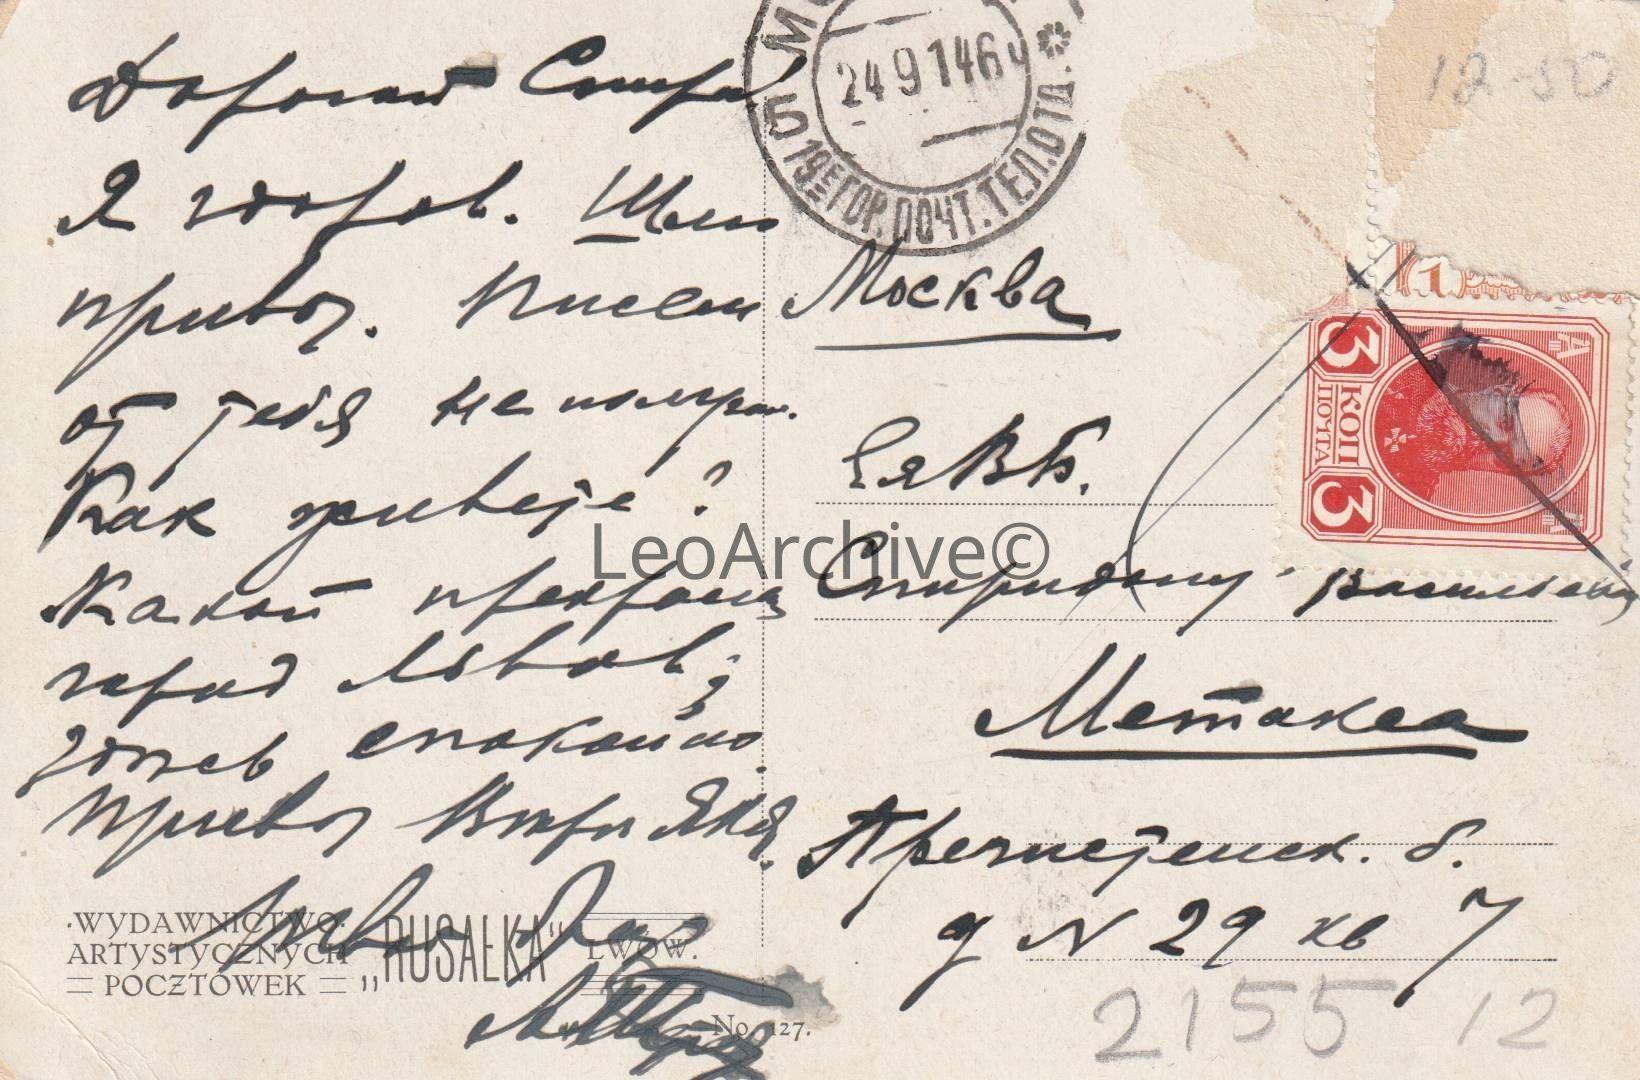 Дорогой Спиро
Я здоров. Шлю
привет. Писем
от тебя не получал.
Как живете?
Какой прекрасный
город Львов,
здесь спокойно.
Привет
·WYDAWNICTWO·
ARTYSTYCZNYCH
POCZTÓWEK
„RUSAŁKA"
LWÓW.
No. 127.
5 МО
24 9 14
19Е ГОР. ПОЧТ. ТЕЛ. ОТД.
Москва
ЕяВБ.
Спиридону Васильевичу
Метакса
Пречистенск. б.
д N 29 кв 7
3 КОП
ПОЧТА 3
1
12-50
2155 12
LeoArchive©